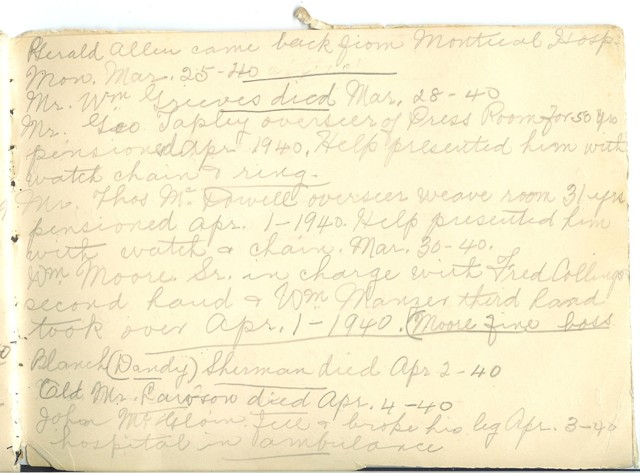 Gerald Allen came back from Montreal Hosp.
Mon. Mar. 25-40
Mr. Wm Grieves died Mar. 28-40
Mr. Geo Tapley overseer of Dress Room for 50 yrs
pensioned Apr 1940. Help presented him with
watch chain & ring.
Mr. Thos Mc Dowell overseer weave room 31 yrs.
pensioned Apr. 1-1940. Help presented him
with watch & chain. Mar. 30-40.
Wm. Moore Sr. in charge with Fred
second hand & Wm Manzer third hand
took over Apr. 1-1940. (Moore fine boss
Blanch (Dandy) Sherman died Apr 2-40
Old Mr. Rawson died Apr. 4-40
John Mc fell & broke his leg Apr. 3-40
hospital in ambulance